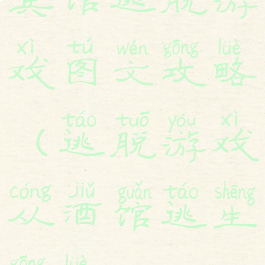 宾馆逃脱游
xì tú wén gōng lüè
戏图文攻略
táo tuō yóu xì
（逃脱游戏
cóng jiǔ guǎn táo shēng
从酒馆逃生
gōng lüè